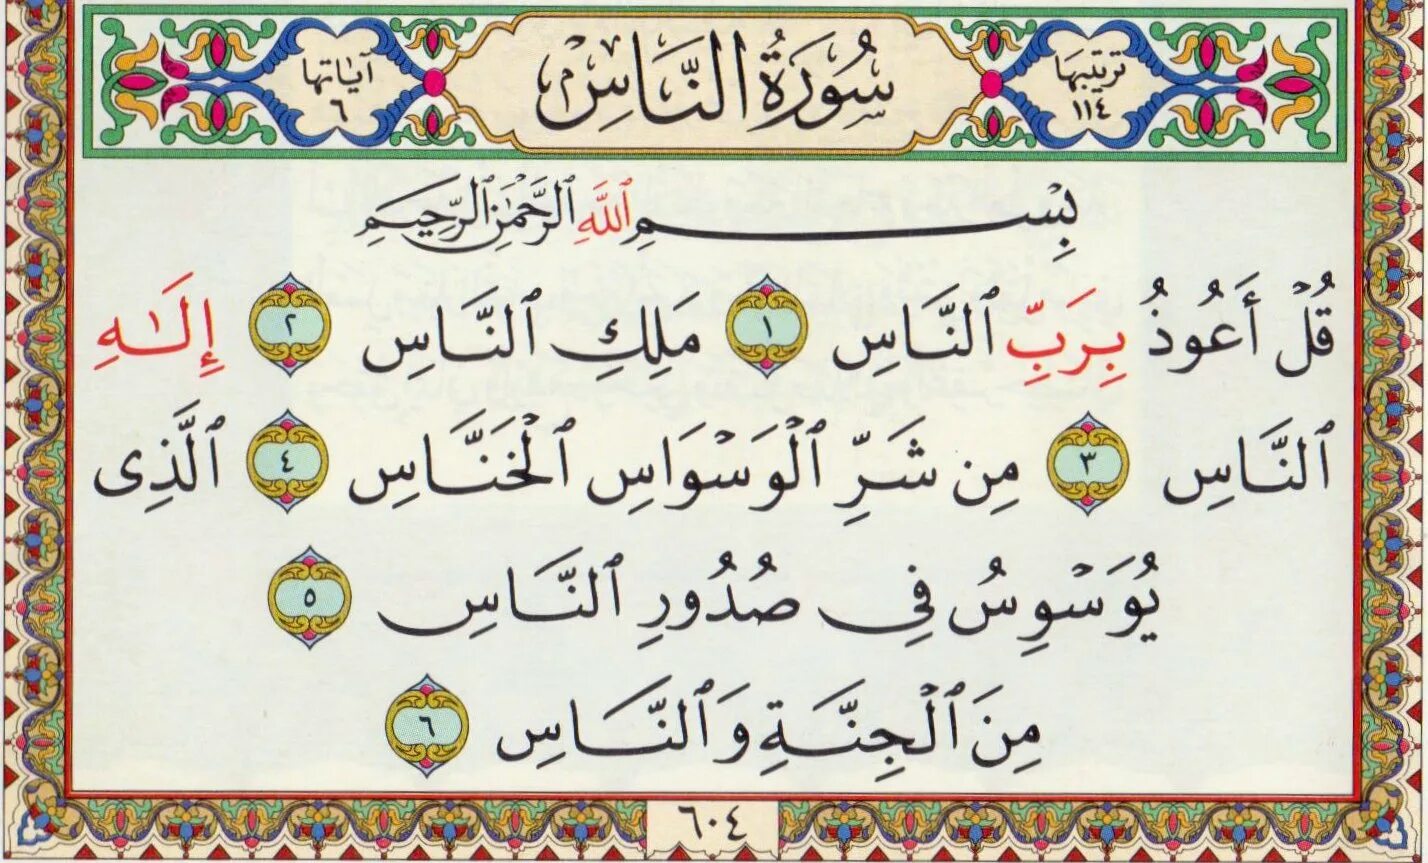 ترتيبها
١١٤
سُورَةُ النَّاسِ
آياتها
٦
بِسْمِ ٱللَّهِ ٱلرَّحْمَٰنِ ٱلرَّحِيمِ
قُلْ أَعُوذُ بِرَبِّ ٱلنَّاسِ ١ مَلِكِ ٱلنَّاسِ ٢ إِلَٰهِ
ٱلنَّاسِ ٣ مِن شَرِّ ٱلْوَسْوَاسِ ٱلْخَنَّاسِ ٤ ٱلَّذِى
يُوَسْوِسُ فِى صُدُورِ ٱلنَّاسِ ٥
مِنَ ٱلْجِنَّةِ وَٱلنَّاسِ ٦
٦٠٤